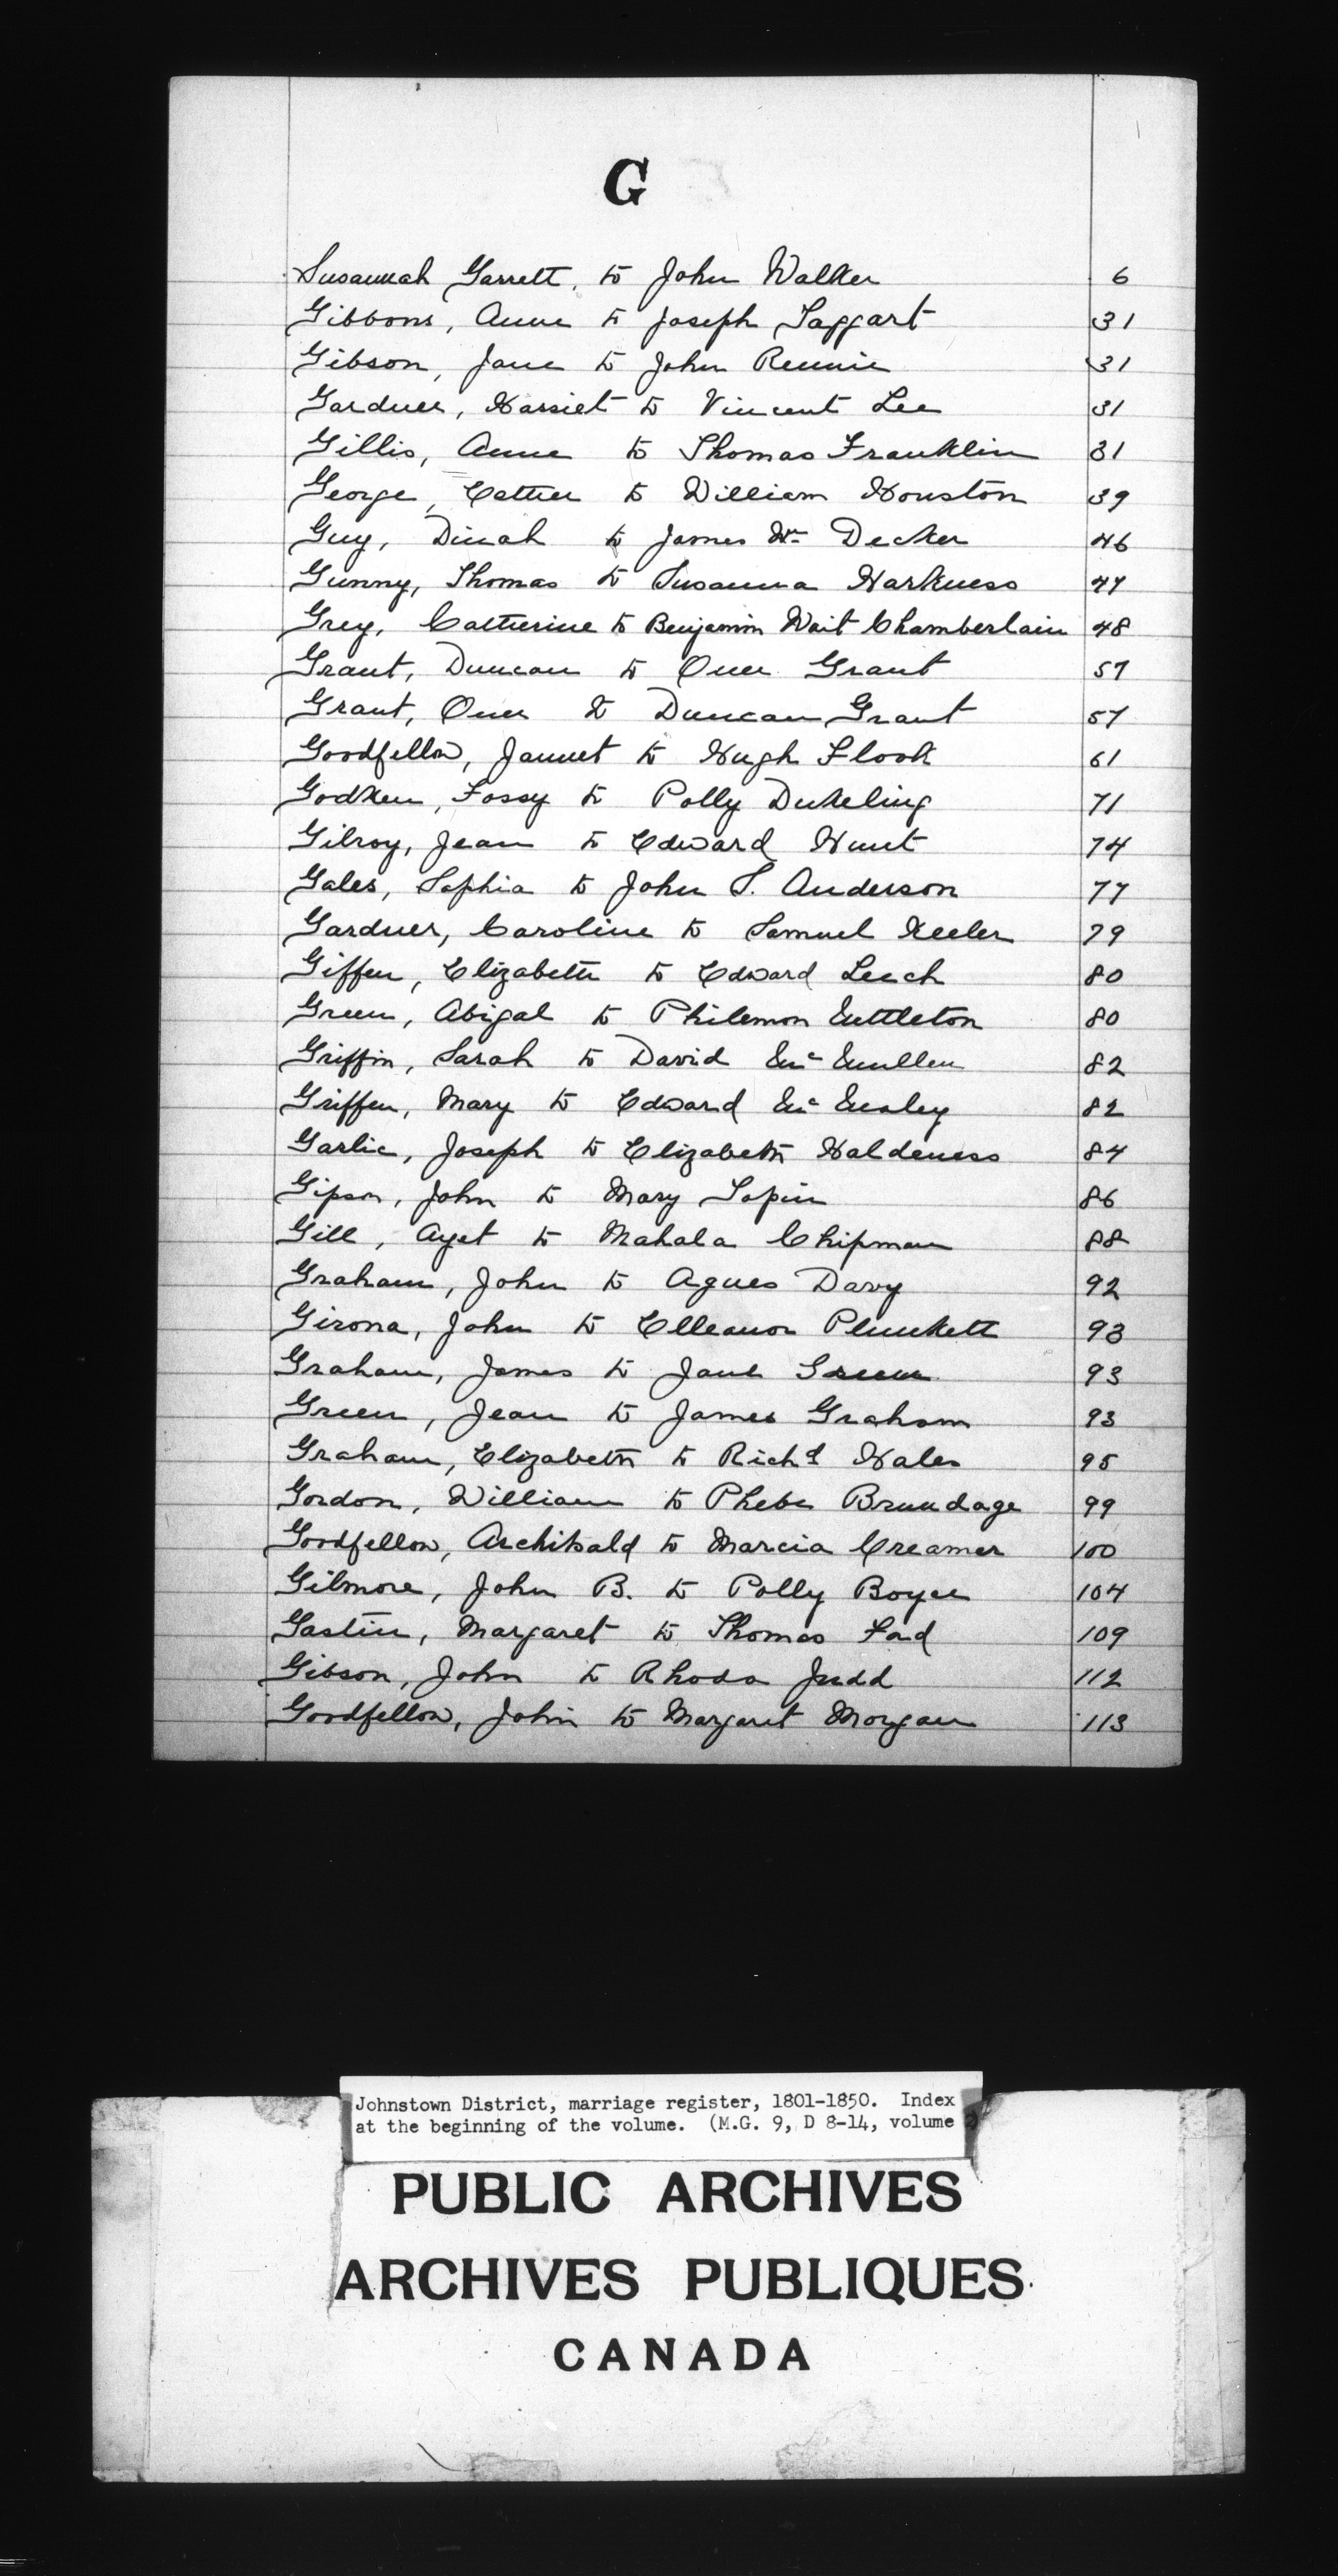 G
Susannah Garrett, to John Walker 6
Gibbons, Anne to Joseph Taggart 31
Gibson, Jane to John Rennie 31
Gardner, Harriet to Vincent Lee 31
Gillis, Anne to Thomas Franklin 31
George, Esther to William Houston 39
Guy, Dinah to James Wm Decker 46
Gunny, Thomas to Susanna Harkness 47
Grey, Catherine to Benjamin Wait Chamberlain 48
Grant, Duncan to Oner Grant 57
Grant, Oner to Duncan Grant 57
Goodfellow, Jannet to Hugh Flook 61
Godken, Fossy to Polly Dukeling 71
Gilroy, Jean to Edward Hunt 74
Gales, Sophia to John S. Anderson 77
Gardner, Caroline to Samuel Keeler 79
Giffen, Elizabeth to Edward Leech 80
Green, Abigal to Philemon 80
Griffin, Sarah to David 82
Griffen, Mary to Edward 82
Garlic, Joseph to Elizabeth Haldeness 84
Gipson, John to Mary Topin 86
Gill, Ayet to Mahala Chipman 88
Graham, John to Agnes Davy 92
Girona, John to Elleanor Plunkett 93
Graham, James to Jane Green 93
Green, Jean to James Graham 93
Graham, Elizabeth to Richd Hales 95
Gordon, William to Phebe Brundage 99
Goodfellow, Archibald to Marcia Creamer 100
Gilmore, John B. to Polly Boyce 104
Gastin, Margaret to Thomas Ford 109
Gibson, John to Rhoda Judd 112
Goodfellow, John to Margaret Morgan 113
Johnstown District, marriage register, 1801-1850. Index
at the beginning of the volume. (M.G. 9, D 8-14, volume
PUBLIC ARCHIVES
ARCHIVES PUBLIQUES
CANADA